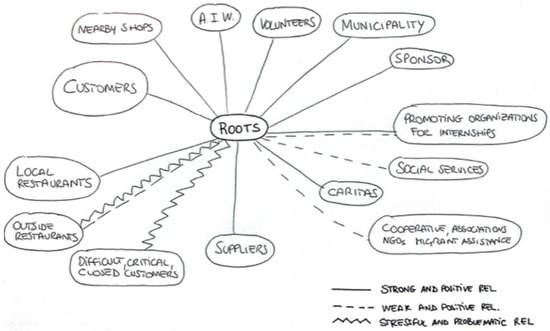 NEARBY SHOPS
A.I.W.
VOLUNTEERS
MUNICIPALITY
SPONSOR
CUSTOMERS
ROOTS
PROMOTING ORGANIZATIONS
FOR INTERNSHIPS
LOCAL
RESTAURANTS
SOCIAL SERVICES
CARITAS
OUTSIDE
RESTAURANTS
COOPERATIVE, ASSOCIATIONS
NGOs MIGRANT ASSISTANCE
DIFFICULT, CRITICAL,
CLOSED CUSTOMERS
SUPPLIERS
STRONG AND POSITIVE REL.
WEAK AND POSITIVE REL.
STRESSFUL AND PROBLEMATIC REL